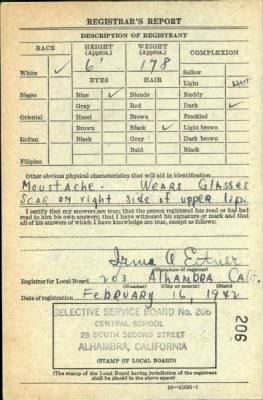 REGISTRAR'S REPORT
DESCRIPTION OF REGISTRANT
RACE HEIGHT (Approx.) WEIGHT (Approx.) COMPLEXION
6' 178
White ✓ Sallow
EYES HAIR Light
Negro Blue ✓ Blonde Ruddy
Gray Red Dark ✓
Oriental Hazel Brown Freckled
Brown Black ✓ Light brown
Indian Black Gray Dark brown
Bald Black
Filipino
Other obvious physical characteristics that will aid in identification
Moustache - Wears Glasses
Scar on right side of upper lip.
I certify that my answers are true; that the person registered has read or has had
read to him his own answers; that I have witnessed his signature or mark and that
all of his answers of which I have knowledge are true, except as follows:
Irma
(Signature of registrar)
Registrar for Local Board 203 Alhambra Calif.
(Number) (City or county) (State)
Date of registration February 16, 1942
SELECTIVE SERVICE BOARD No. 206
CENTRAL SCHOOL
29 SOUTH SECOND STREET
ALHAMBRA, CALIFORNIA
206
(STAMP OF LOCAL BOARD)
(The stamp of the Local Board having jurisdiction of the registrant
shall be placed in the above space)